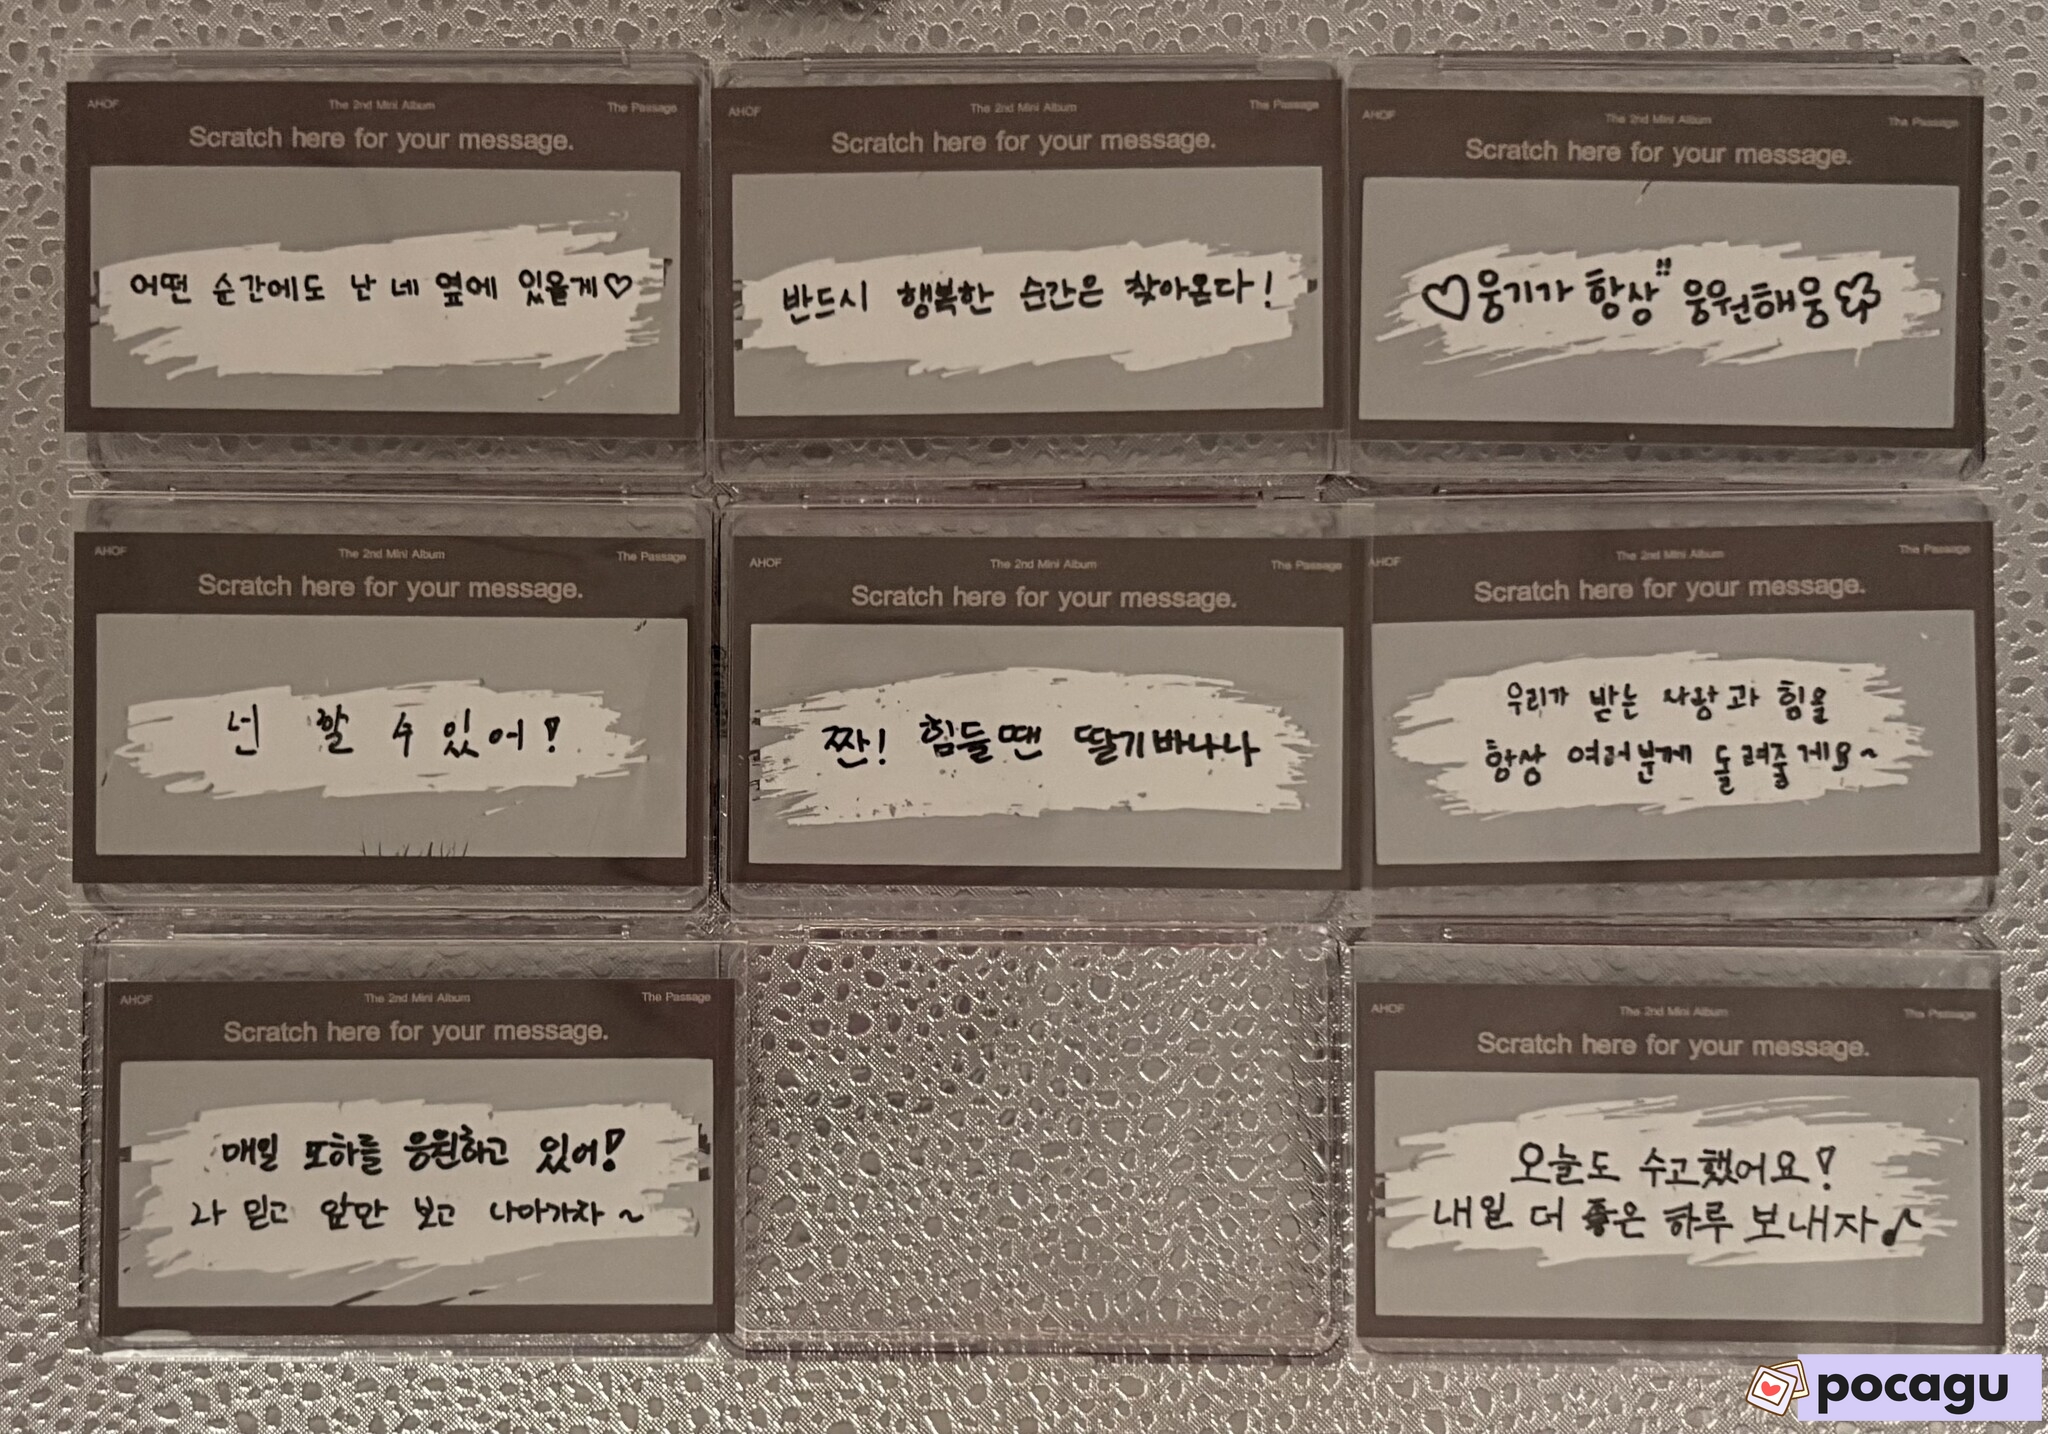 AHOF The 2nd Mini Album The Passage
Scratch here for your message.
어떤 순간에도 난 네 옆에 있을게♡
AHOF The 2nd Mini Album The Passage
Scratch here for your message.
반드시 행복한 순간은 찾아온다!
AHOF The 2nd Mini Album The Passage
Scratch here for your message.
♡웅기가 항상 웅원해웅
AHOF The 2nd Mini Album The Passage
Scratch here for your message.
넌 할 수 있어!
AHOF The 2nd Mini Album The Passage
Scratch here for your message.
짠! 힘들땐 딸기바나나
AHOF The 2nd Mini Album The Passage
Scratch here for your message.
우리가 받는 사랑과 힘을
항상 여러분께 돌려줄게요~
AHOF The 2nd Mini Album The Passage
Scratch here for your message.
매일 포하를 응원하고 있어!
나 믿고 앞만 보고 나아가자~
AHOF The 2nd Mini Album The Passage
Scratch here for your message.
오늘도 수고했어요!
내일 더 좋은 하루 보내자♪
pocagu